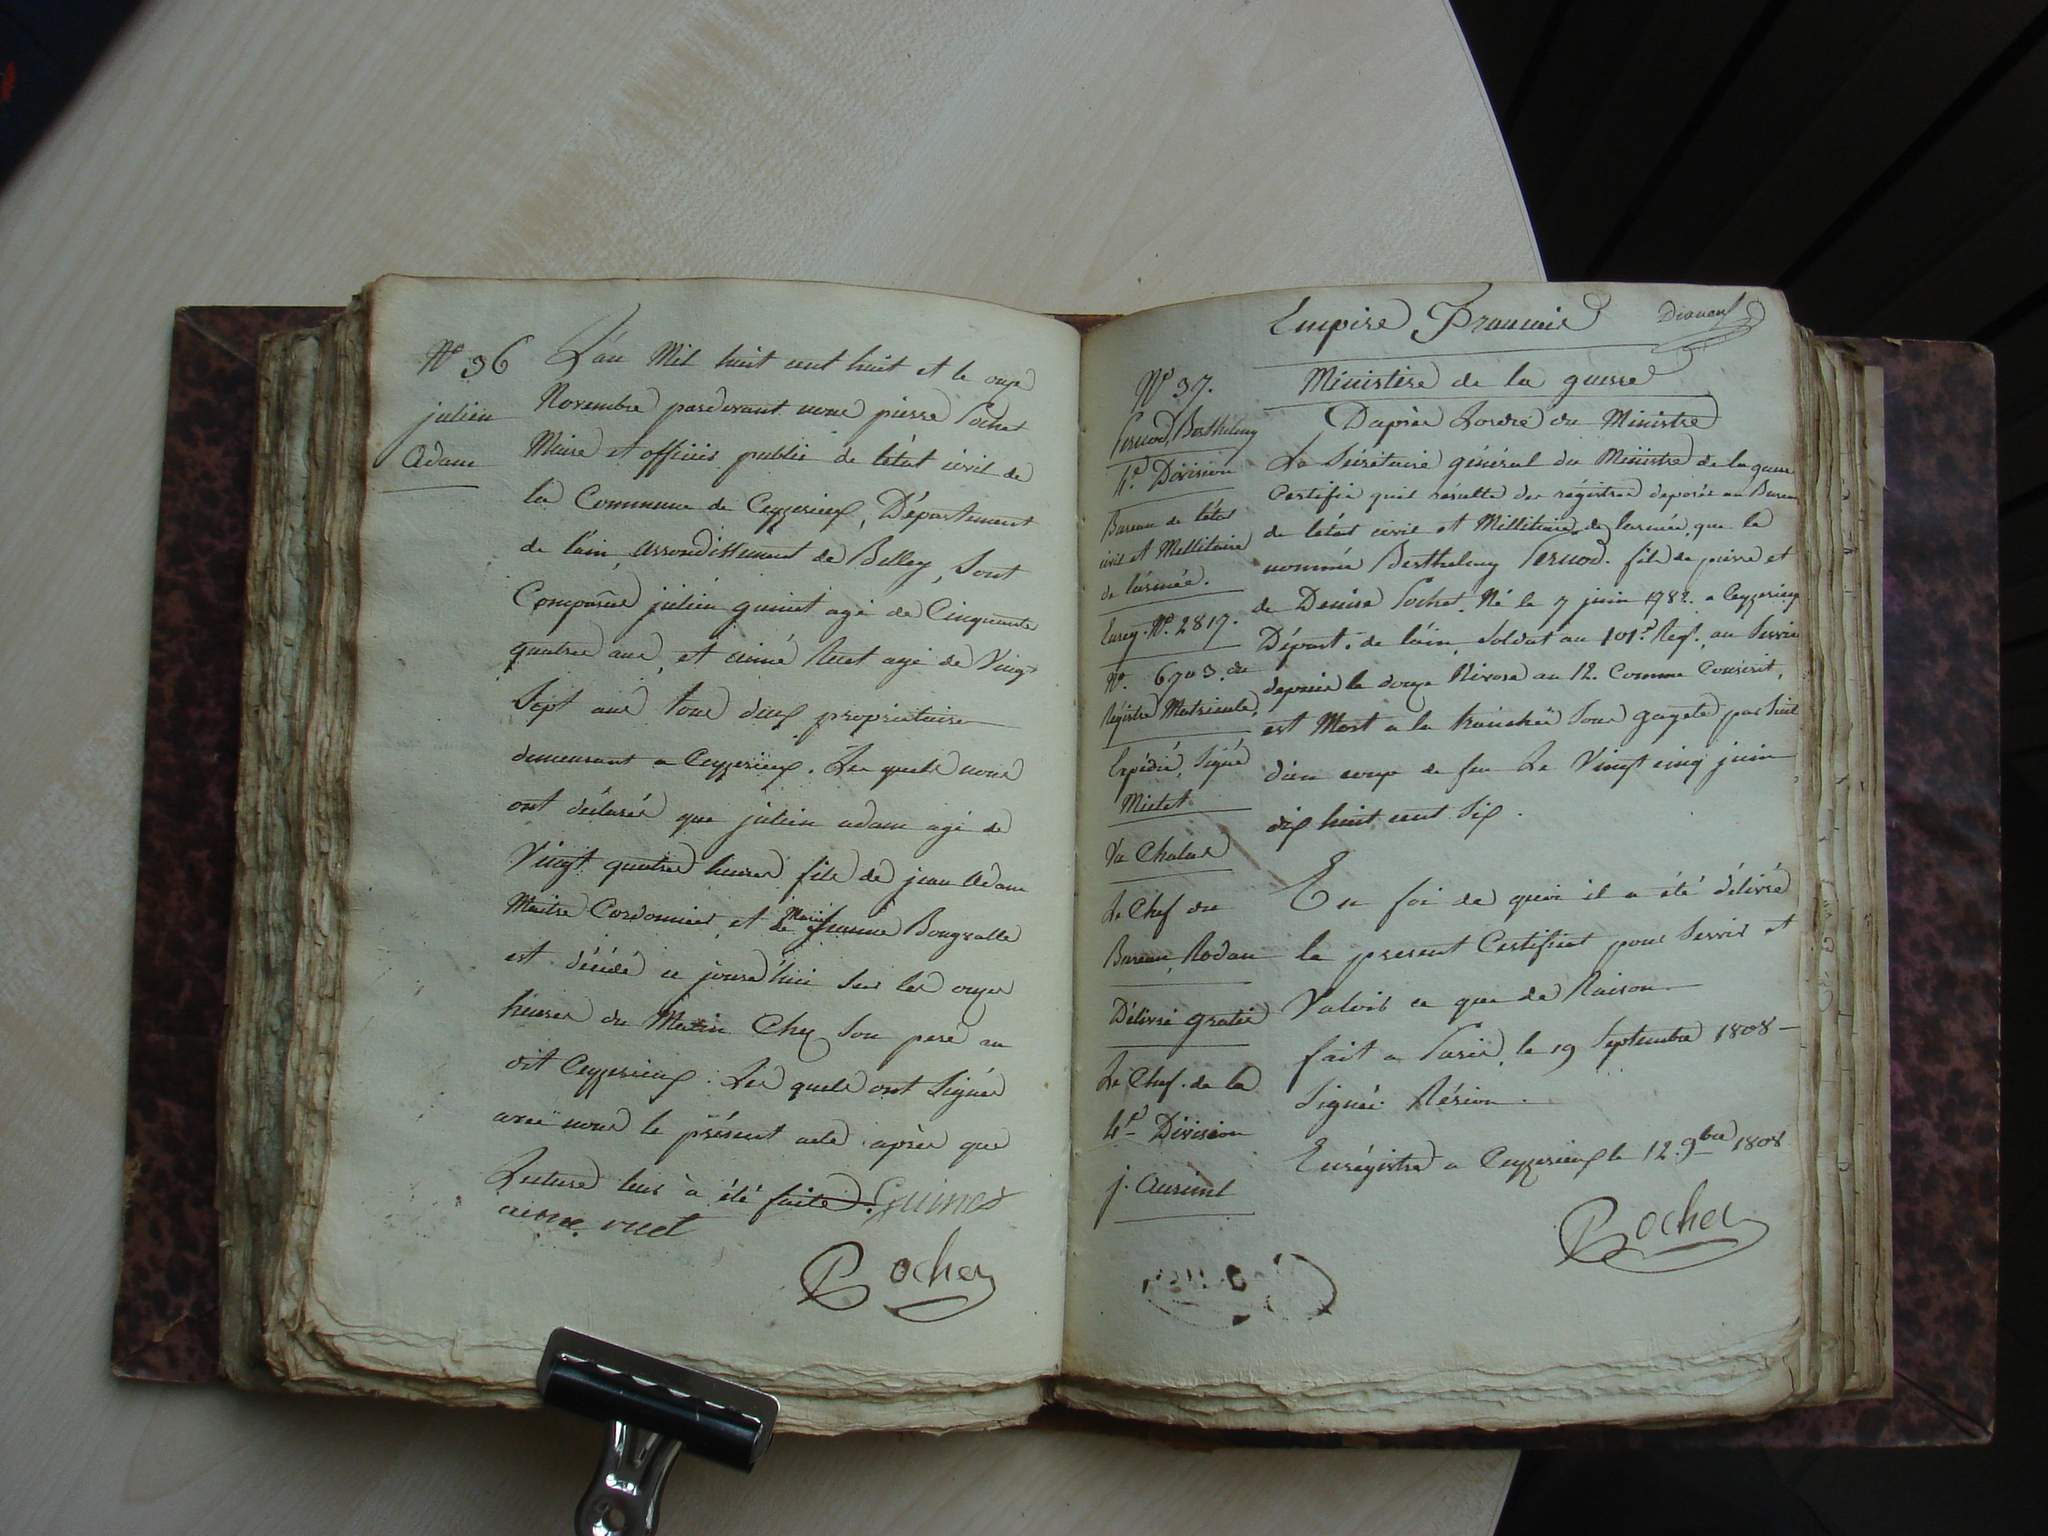 N° 36
julien
Adam
L'an Mil huit cent huit et le onze
Novembre pardevant nous pierre Pochet
Maire et officier public de l'état civil de
la Commune de Ceyzerieux, Département
de l'ain, arrondissement de Belley, Sont
Comparus julien guinet agé de Cinquante
quatre ans, et aimé ruet agé de Vingt
Sept ans tous deux propriétaires
demeurant a Ceyzerieux. Les quels nous
ont déclarés que julien adam agé de
Vingt quatre heures fils de jean Adam
Maitre Cordonnier, et de Marie jeanne
est décédé ce jourd'hui sur les onze
heures du Matin Chez son pere au
dit Ceyzerieux. Les quels ont Signés
avec nous le présent acte après que
Lecture leur a été faite. Guinet
aimé ruet
Pochet
Empire Francais
Ministère de la guerre
N° 37.
Pernod, Berthelmy
4e Division
Bureau de l'état
civil et Millitaire
de l'armée.
Enreg. N° 2817.
N° 6703. du
Régistre Matricule,
Expédié, Signé
Mietet
Vu Chalas
Le Chef du
Bureau, Rodau
Délivré gratis
Le Chef de la
4e Division
D'après Lordre du Ministre
Le Sécrétaire général du Ministre de la guerre
Certifie quil résulte des régistres deposés au Bureau
de l'état civil et Millitaire de l'armée, que le
nommé Berthelmy Pernod. fils de pierre et
de Denise Pochet. Né le 7 juin 1782. a Ceyzerieux
Départ. de l'ain, Soldat au 101e Regt. au Service
depuis le douze Nivose an 12. Comme Conscrit,
est Mort a la tranchée Sous gayete par Suite
d'un coup de feu Le Vingt cinq juin
dix huit cent Six.
En foi de quoi il a été délivré
le present Certificat pour Servir et
Valoir ce que de Raison.
fait a Paris, le 19 Septembre 1808
Signé
Enrégistré a Ceyzerieux le 12. 9bre 1808
Pochet